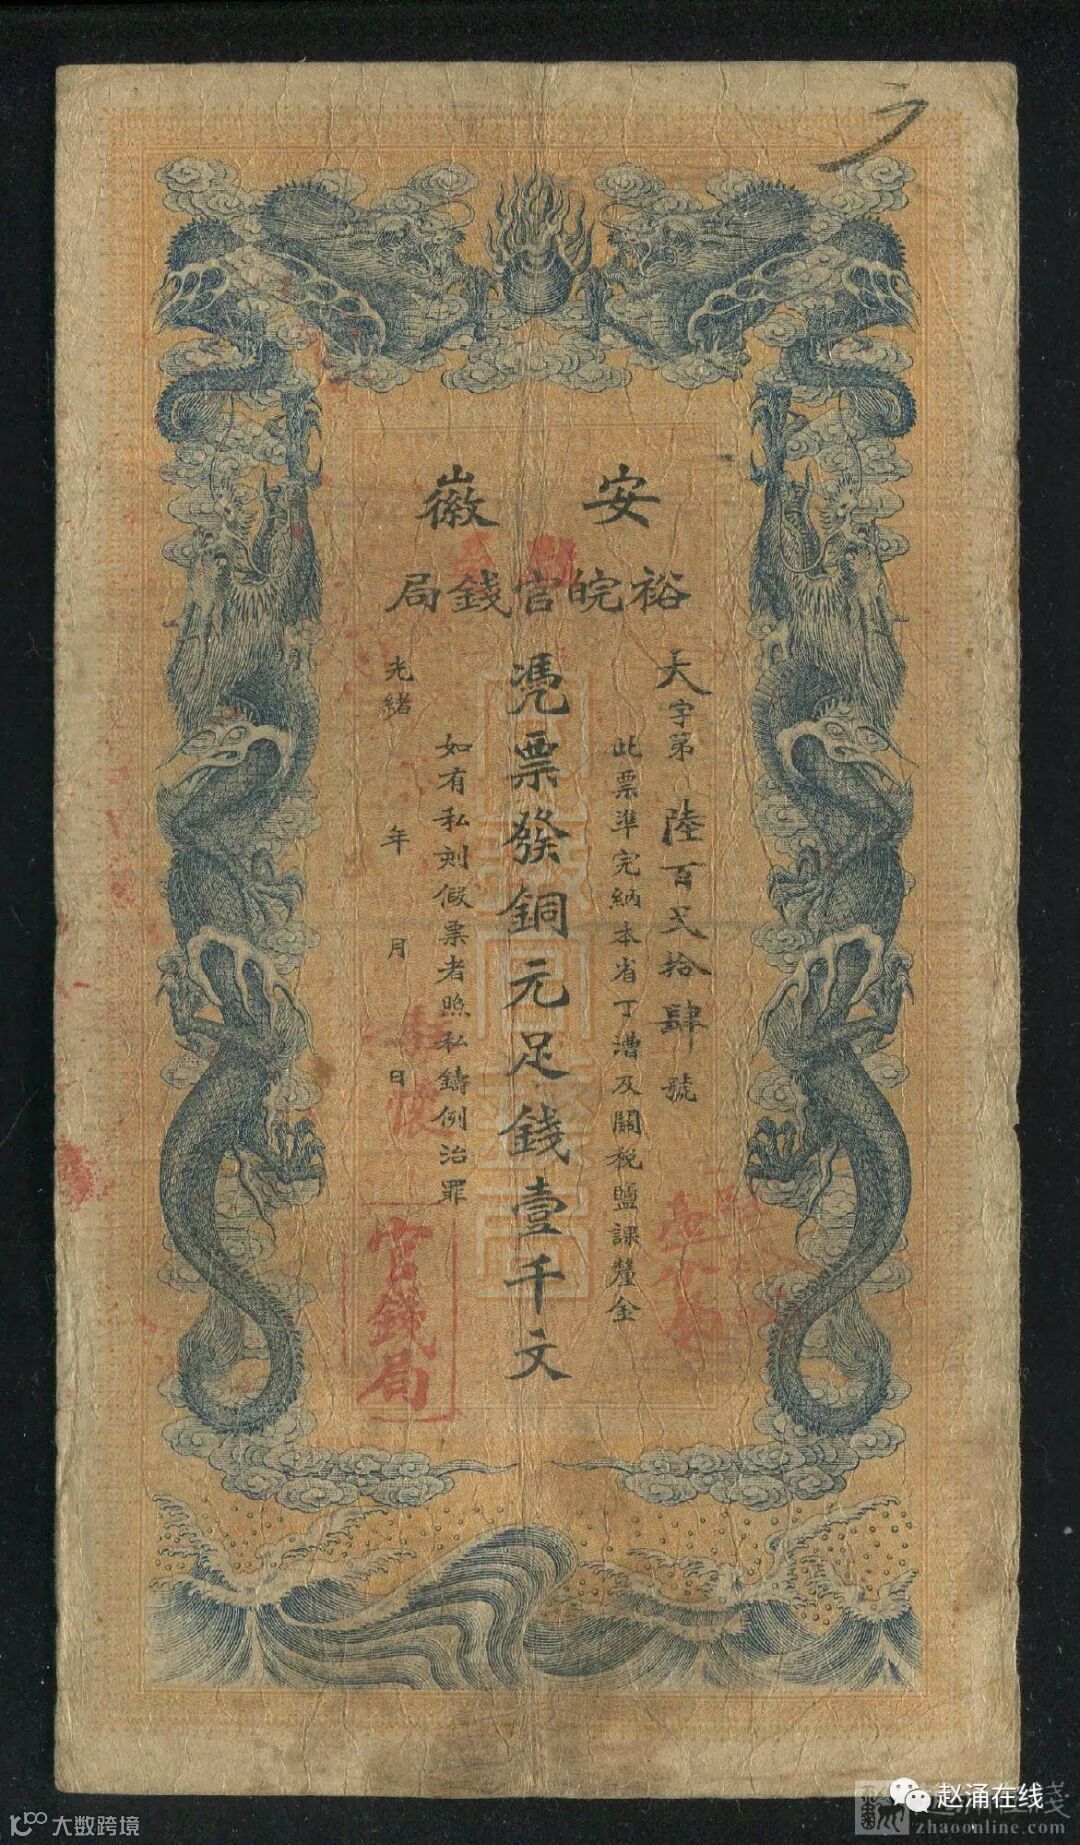 安徽
裕皖官錢局
天字第陸百弍拾肆號
此票準完納本省丁漕及關稅鹽課釐金
憑票發銅元足錢壹千文
如有私刻假票者照私鑄例治罪
光緒 年 月 日
官錢局
大数跨境
赵涌在线
zhaoonline.com